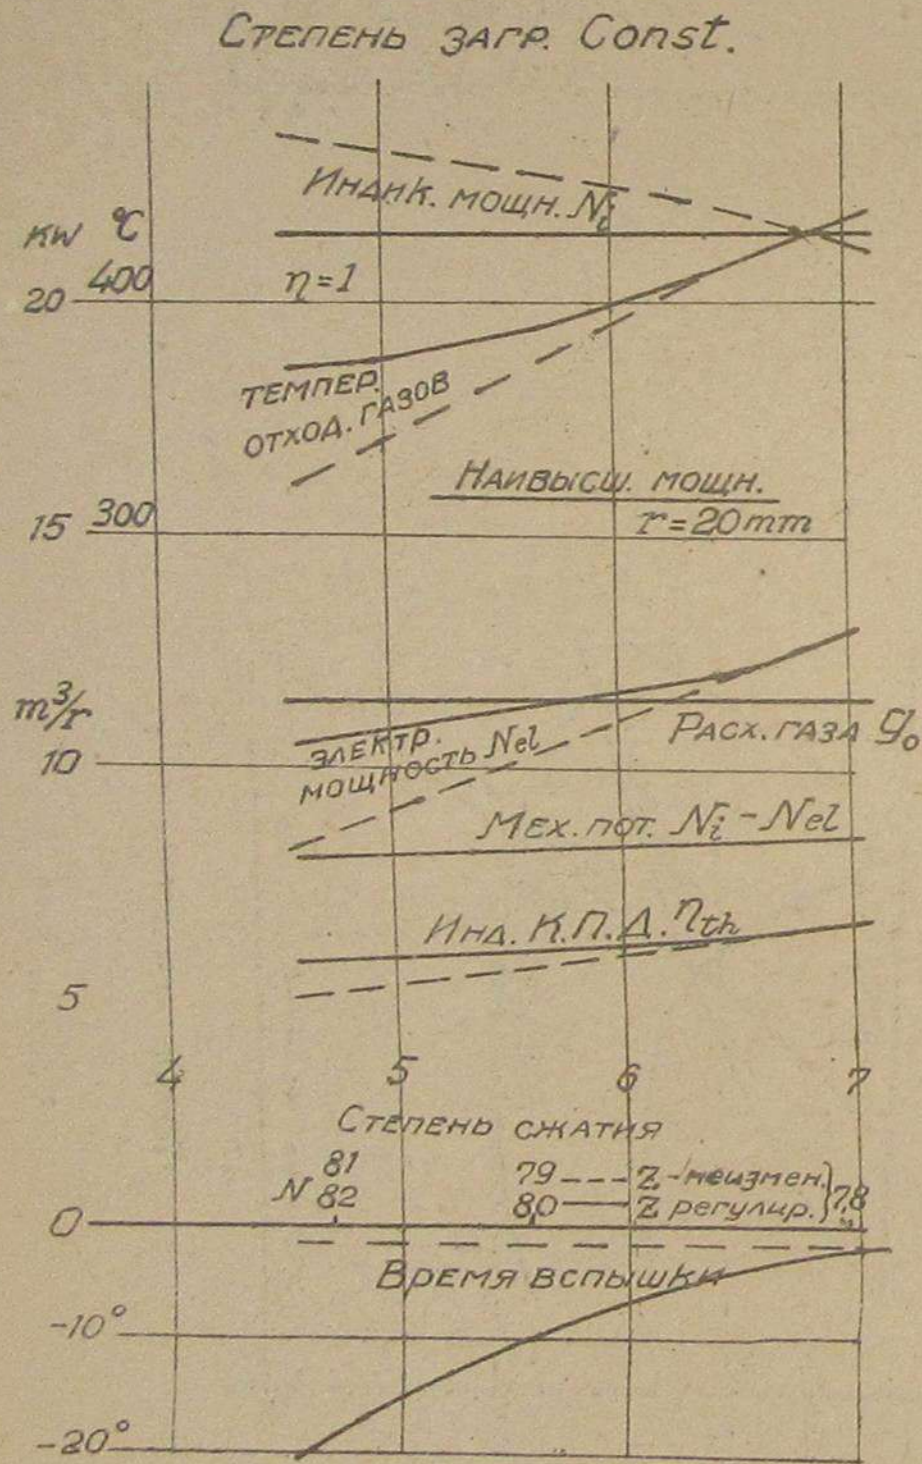 Степень загр. Const.
Индик. мощн. Ni
KW °C
400
20
η=1
темпер.
отход. газов
Наивысш. мощн.
r=20mm
15 300
m³/r
Расх. газа g₀
электр.
мощность Nel
10
Мех. пот. Ni - Nel
Инд. К.П.Д. ηth
5
4 5 6 7
Степень сжатия
81 79 Z - неизмен.
N 82 80 Z регулир.
0
Время вспышки
-10°
-20°